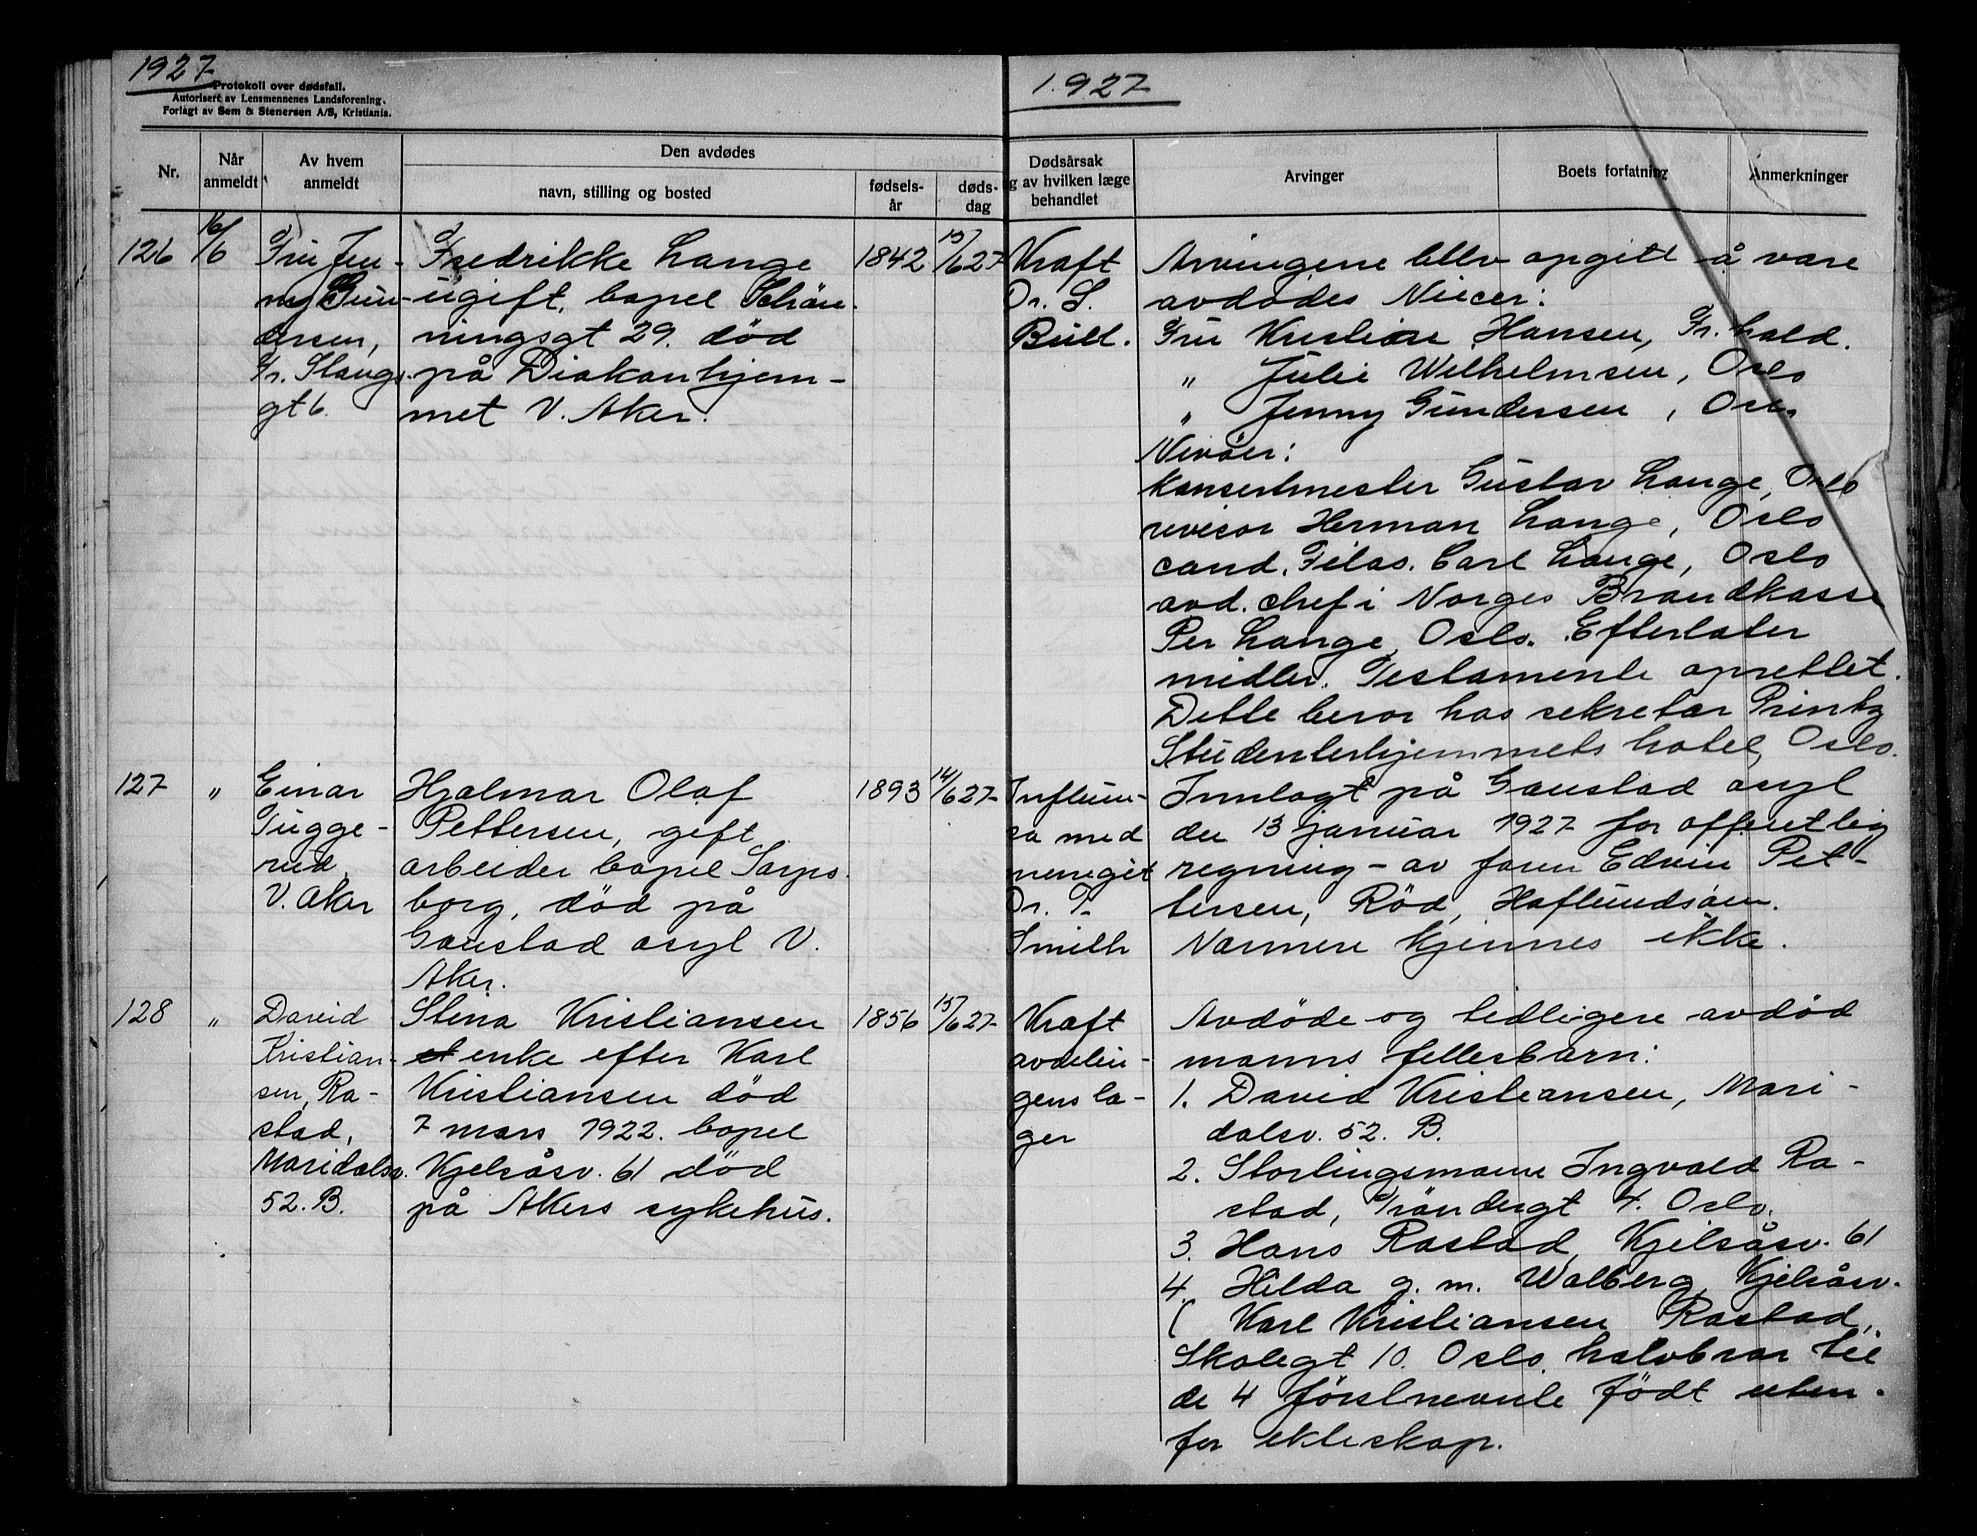 1927
Protokoll over dødsfall.
Autorisert av Lensmennenes Landsforening.
Forlagt av Sem & Stenersen A/S, Kristiania.
1927
Nr.
Når anmeldt
Av hvem anmeldt
Den avdødes
navn, stilling og bosted
fødsels-år
døds-dag
Dødsårsak
g av hvilken læge
behandlet
Arvinger
Boets forfatning
Anmerkninger
126
16/6
Fru Jen-
ny Gun-
dersen,
Fr. Stangs
gt 6.
Fredrikke Lange
ugift, bopel Schøn-
ningsgt 29. død
på Diakonhjem-
met V. Aker.
1842
15/6 27
Kraft
Dr. S.
Bull.
Arvingene blev opgitt å være
avdødes Niecer:
Fru Kristine Hansen, Fr.hald.
" Julie Wilhelmsen, Oslo
" Jenny Gundersen, Oslo
Nevøer:
Konsertmester Gustav Lange, Oslo
revisor Herman Lange, Oslo
cand. Filos. Carl Lange, Oslo
avd. chef i Norges Brandkasse
Per Lange, Oslo. Efterlater
midler. Testamente oprettet.
Dette beror hos sekretær Printz
Studenterhjemmets hotel, Oslo.
127
"
Einar
Tugge-
rud
V. Aker
Hjalmar Olaf
Pettersen, gift
arbeider bopel Sarps-
borg, død på
Gaustad asyl V.
Aker.
1893
14/6 27
Influen-
sa med
meningit
Dr. T.
Smith
Innlagt på Gaustad asyl
den 13 januar 1927 for offentlig
regning - av faren Edvin Pet-
tersen, Rød, Haflundsøen.
Nærmere kjennes ikke.
128
"
David
Kristian-
sen, Ra-
stad,
Maridalsv.
52.B.
Stina Kristiansen
enke efter Karl
Kristiansen død
7 mars 1922. bopel
Kjelsåsv. 61 død
på Akers sykehus.
1856
15/6 27
Kraft
avdelin-
gens læ-
ger
Avdøde og tidligere avdød
manns fellesbarn:
1. David Kristiansen, Mari-
dalsv. 52. B.
2. Stortingsmann Ingvald Ra-
stad, Trøndergt 4. Oslo.
3. Hans Rastad, Kjelsåsv. 61
4. Hilda g. m. Walberg, Kjelsåsv.
( Karl Kristiansen Rastad,
Skolegt 10. Oslo. halvbror til
de 4 førstnevnte født uten-
for ekteskap.